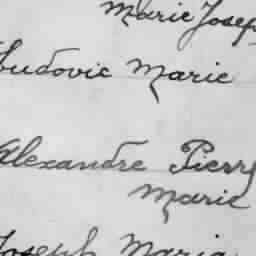 Marie Josep
Ludovic Marie
Alexandre Pierr
Marie
Joseph Maria